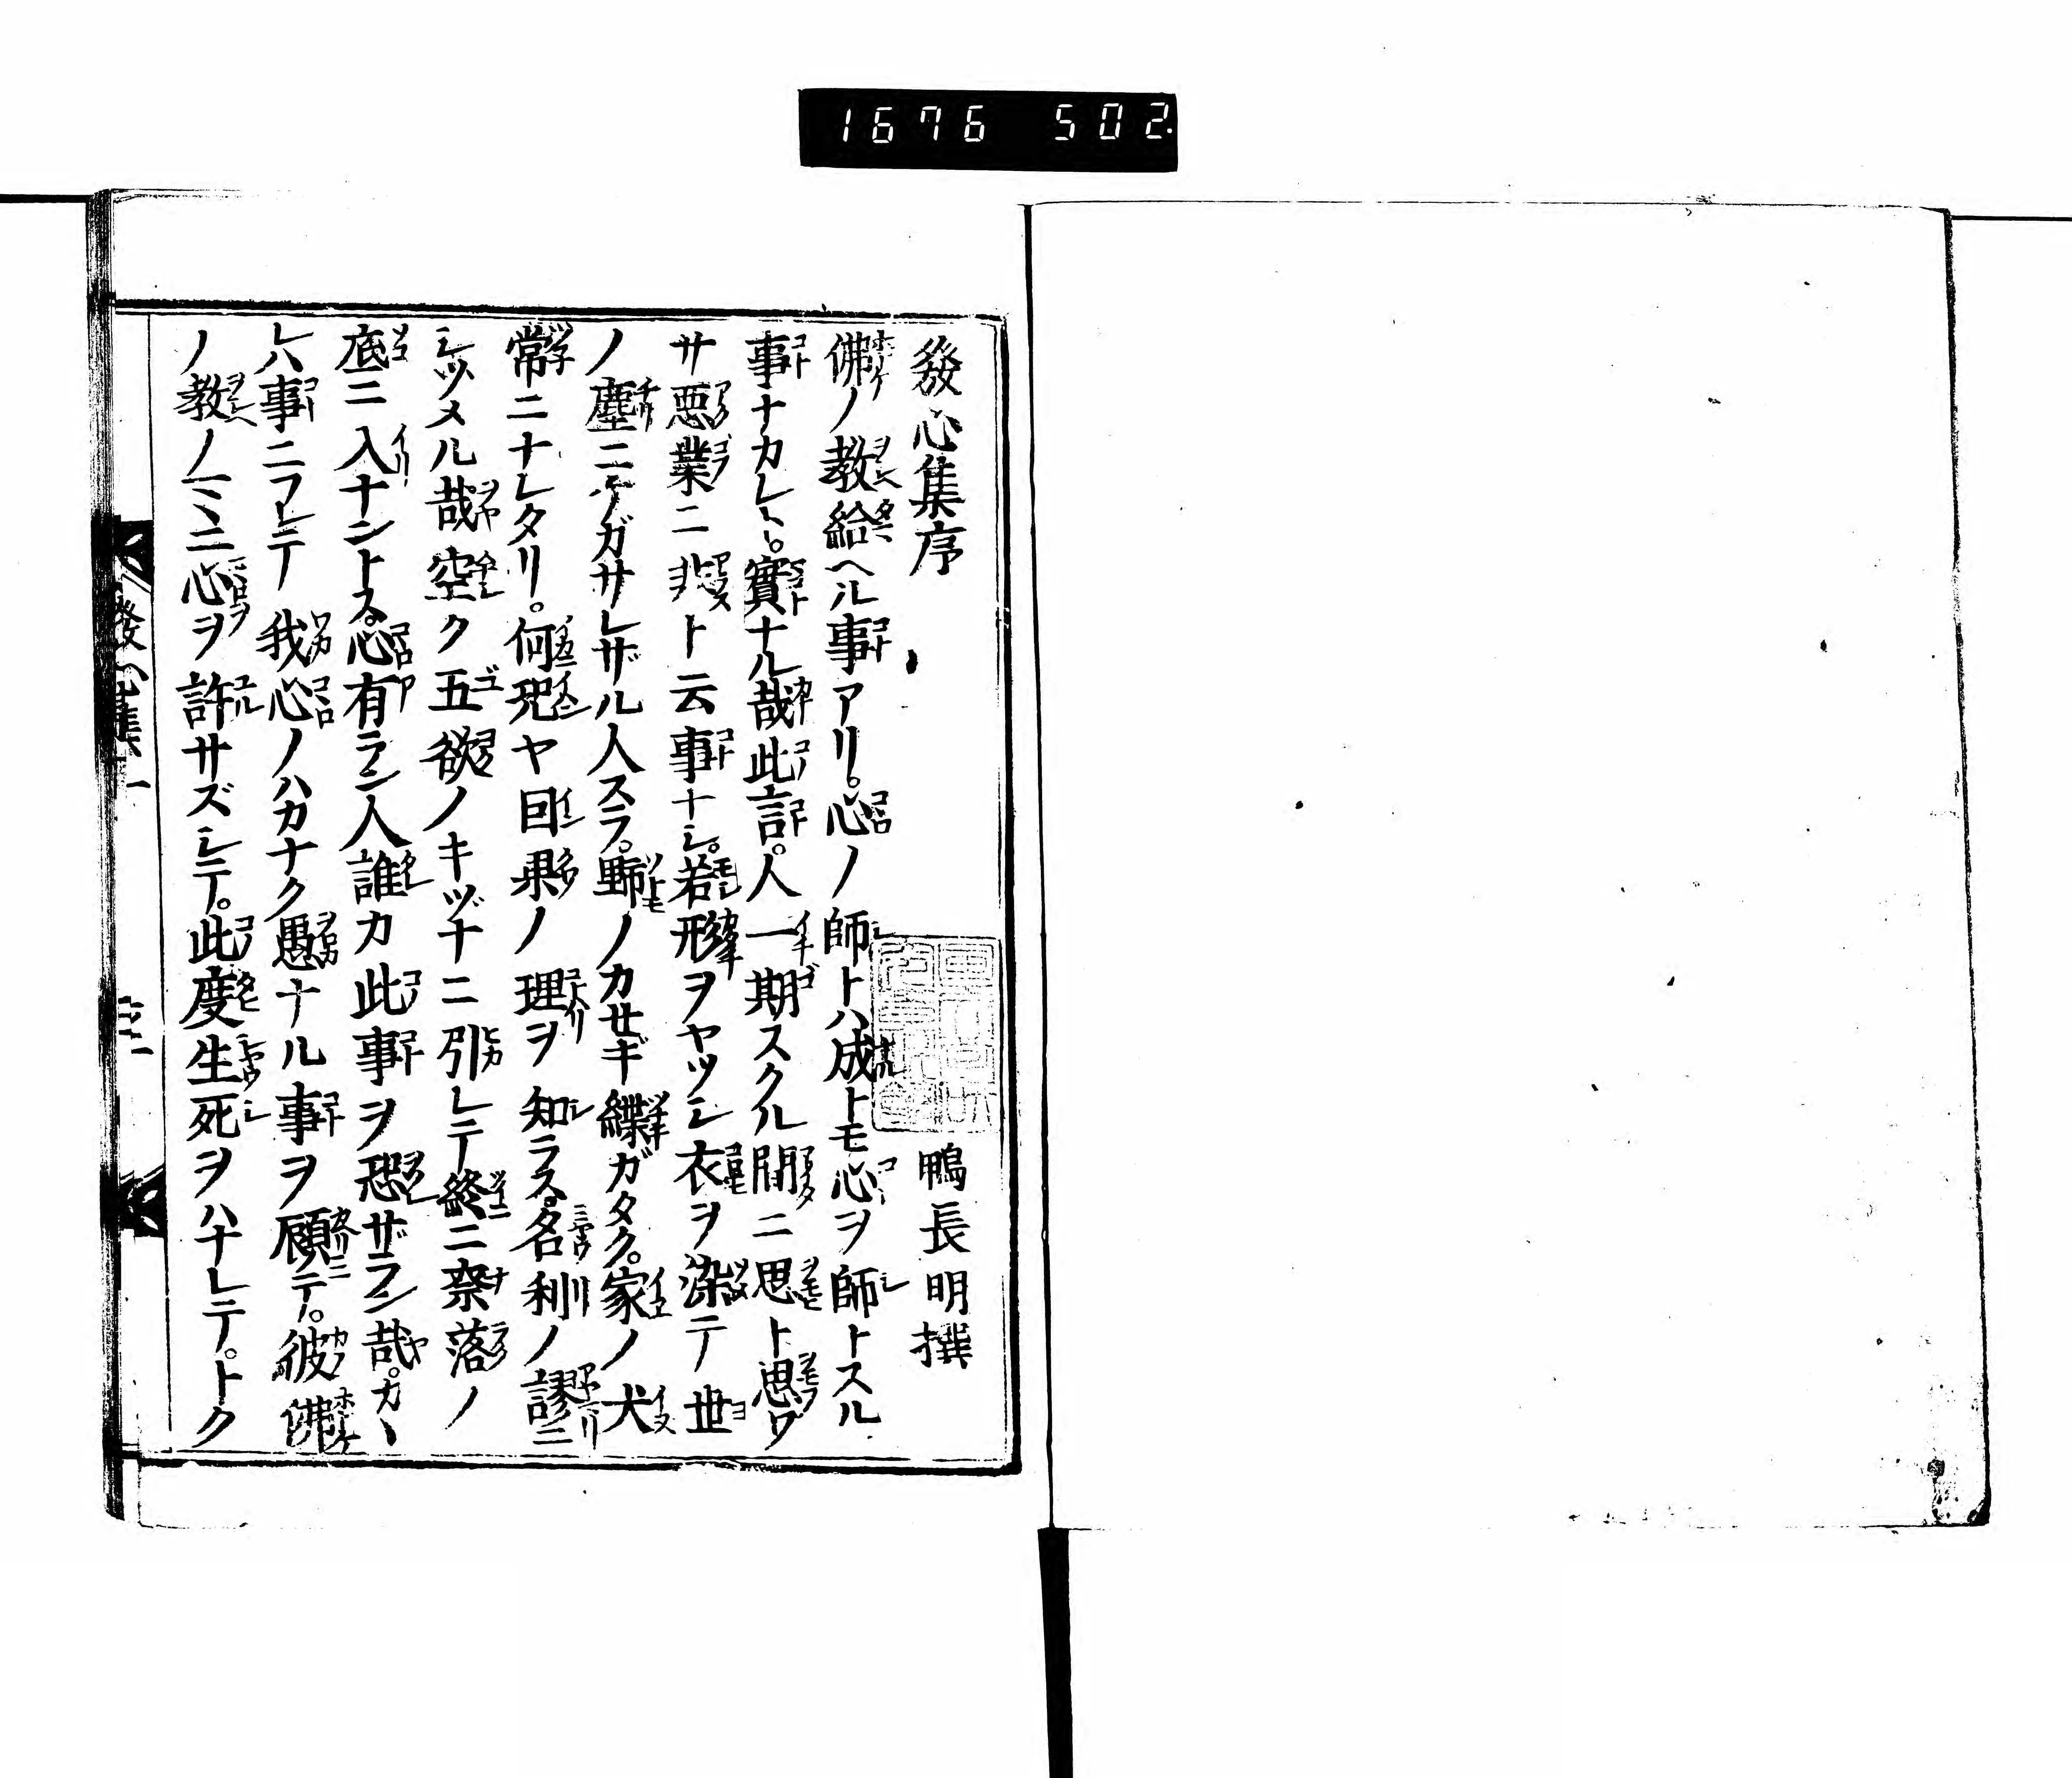 1676 502.
發心集序
鴨長明撰
佛ノ教給ヘル事アリ。心ノ師トハ成トモ心ヲ師トスル
事ナカレト。實ナル哉此言。人一期スクル間ニ思ト思ワ
サ惡業ニ非ト云事ナシ。若形ヲヤツシ衣ヲ染テ世
ノ塵ニケガサレザル人スラ。野ノカセギ繫ガタク。家ノ犬
常ニナレタリ。何况ヤ因果ノ理ヲ知ラス。名利ノ謬ニ
シツメル哉空ク五欲ノキヅナニ引レテ終ニ奈落ノ
底ニ入ナントス。心有ラン人誰カ此事ヲ恐ザラン哉。カヽ
レハ事ニフレテ我心ノハカナク愚ナル事ヲ顧テ。彼佛
ノ教ノマヽニ心ヲ許サズシテ。此度生死ヲハナレテ。トク
發心集一